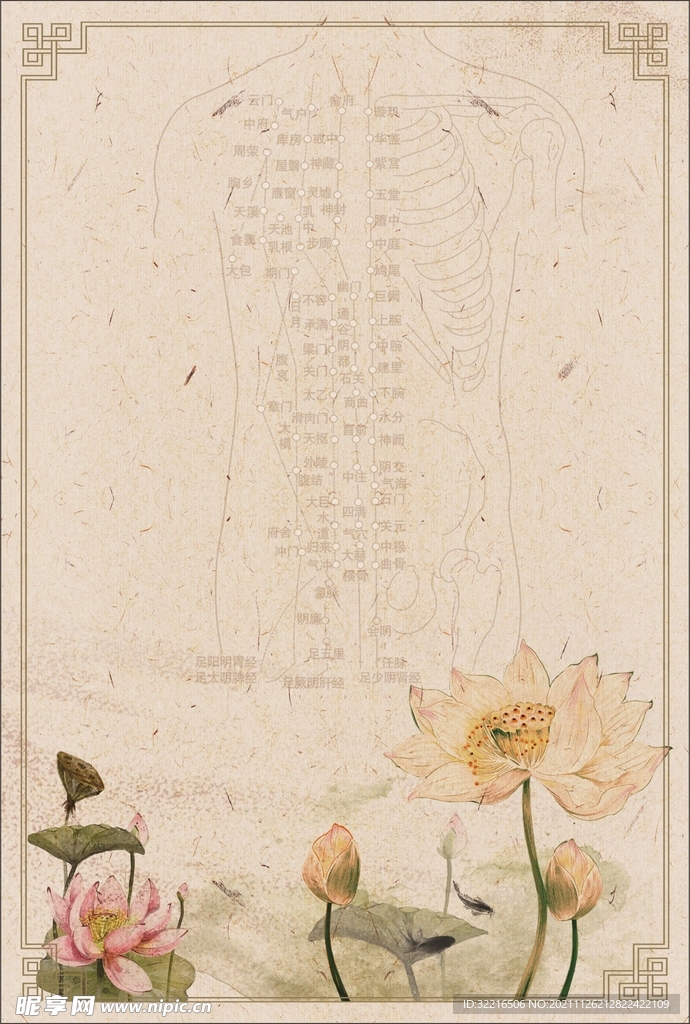 云门 气户 俞府 璇玑
中府 库房 或中 华盖
周荣 屋翳 神藏 紫宫
胸乡 膺窗 灵墟 玉堂
天溪 乳中 神封 膻中
天池
食窦 乳根 步廊 中庭
大包 期门 鸠尾
幽门
不容 巨阙
日月 承满 通谷 上脘
梁门 阴都 中脘
腹哀 关门 石关 建里
太乙 商曲 下脘
章门 滑肉门 水分
大横 天枢 肓俞 神阙
外陵 阴交
腹结 中注 气海
大巨 石门
水道 四满
府舍 气穴 关元
冲门 归来 大赫 中极
气冲 横骨 曲骨
急脉
阴廉 会阴
足五里
足阳明胃经 任脉
足太阴脾经 足厥阴肝经 足少阴肾经
昵享网 www.nipic.cn
ID:32216506 NO:20211126212822422109